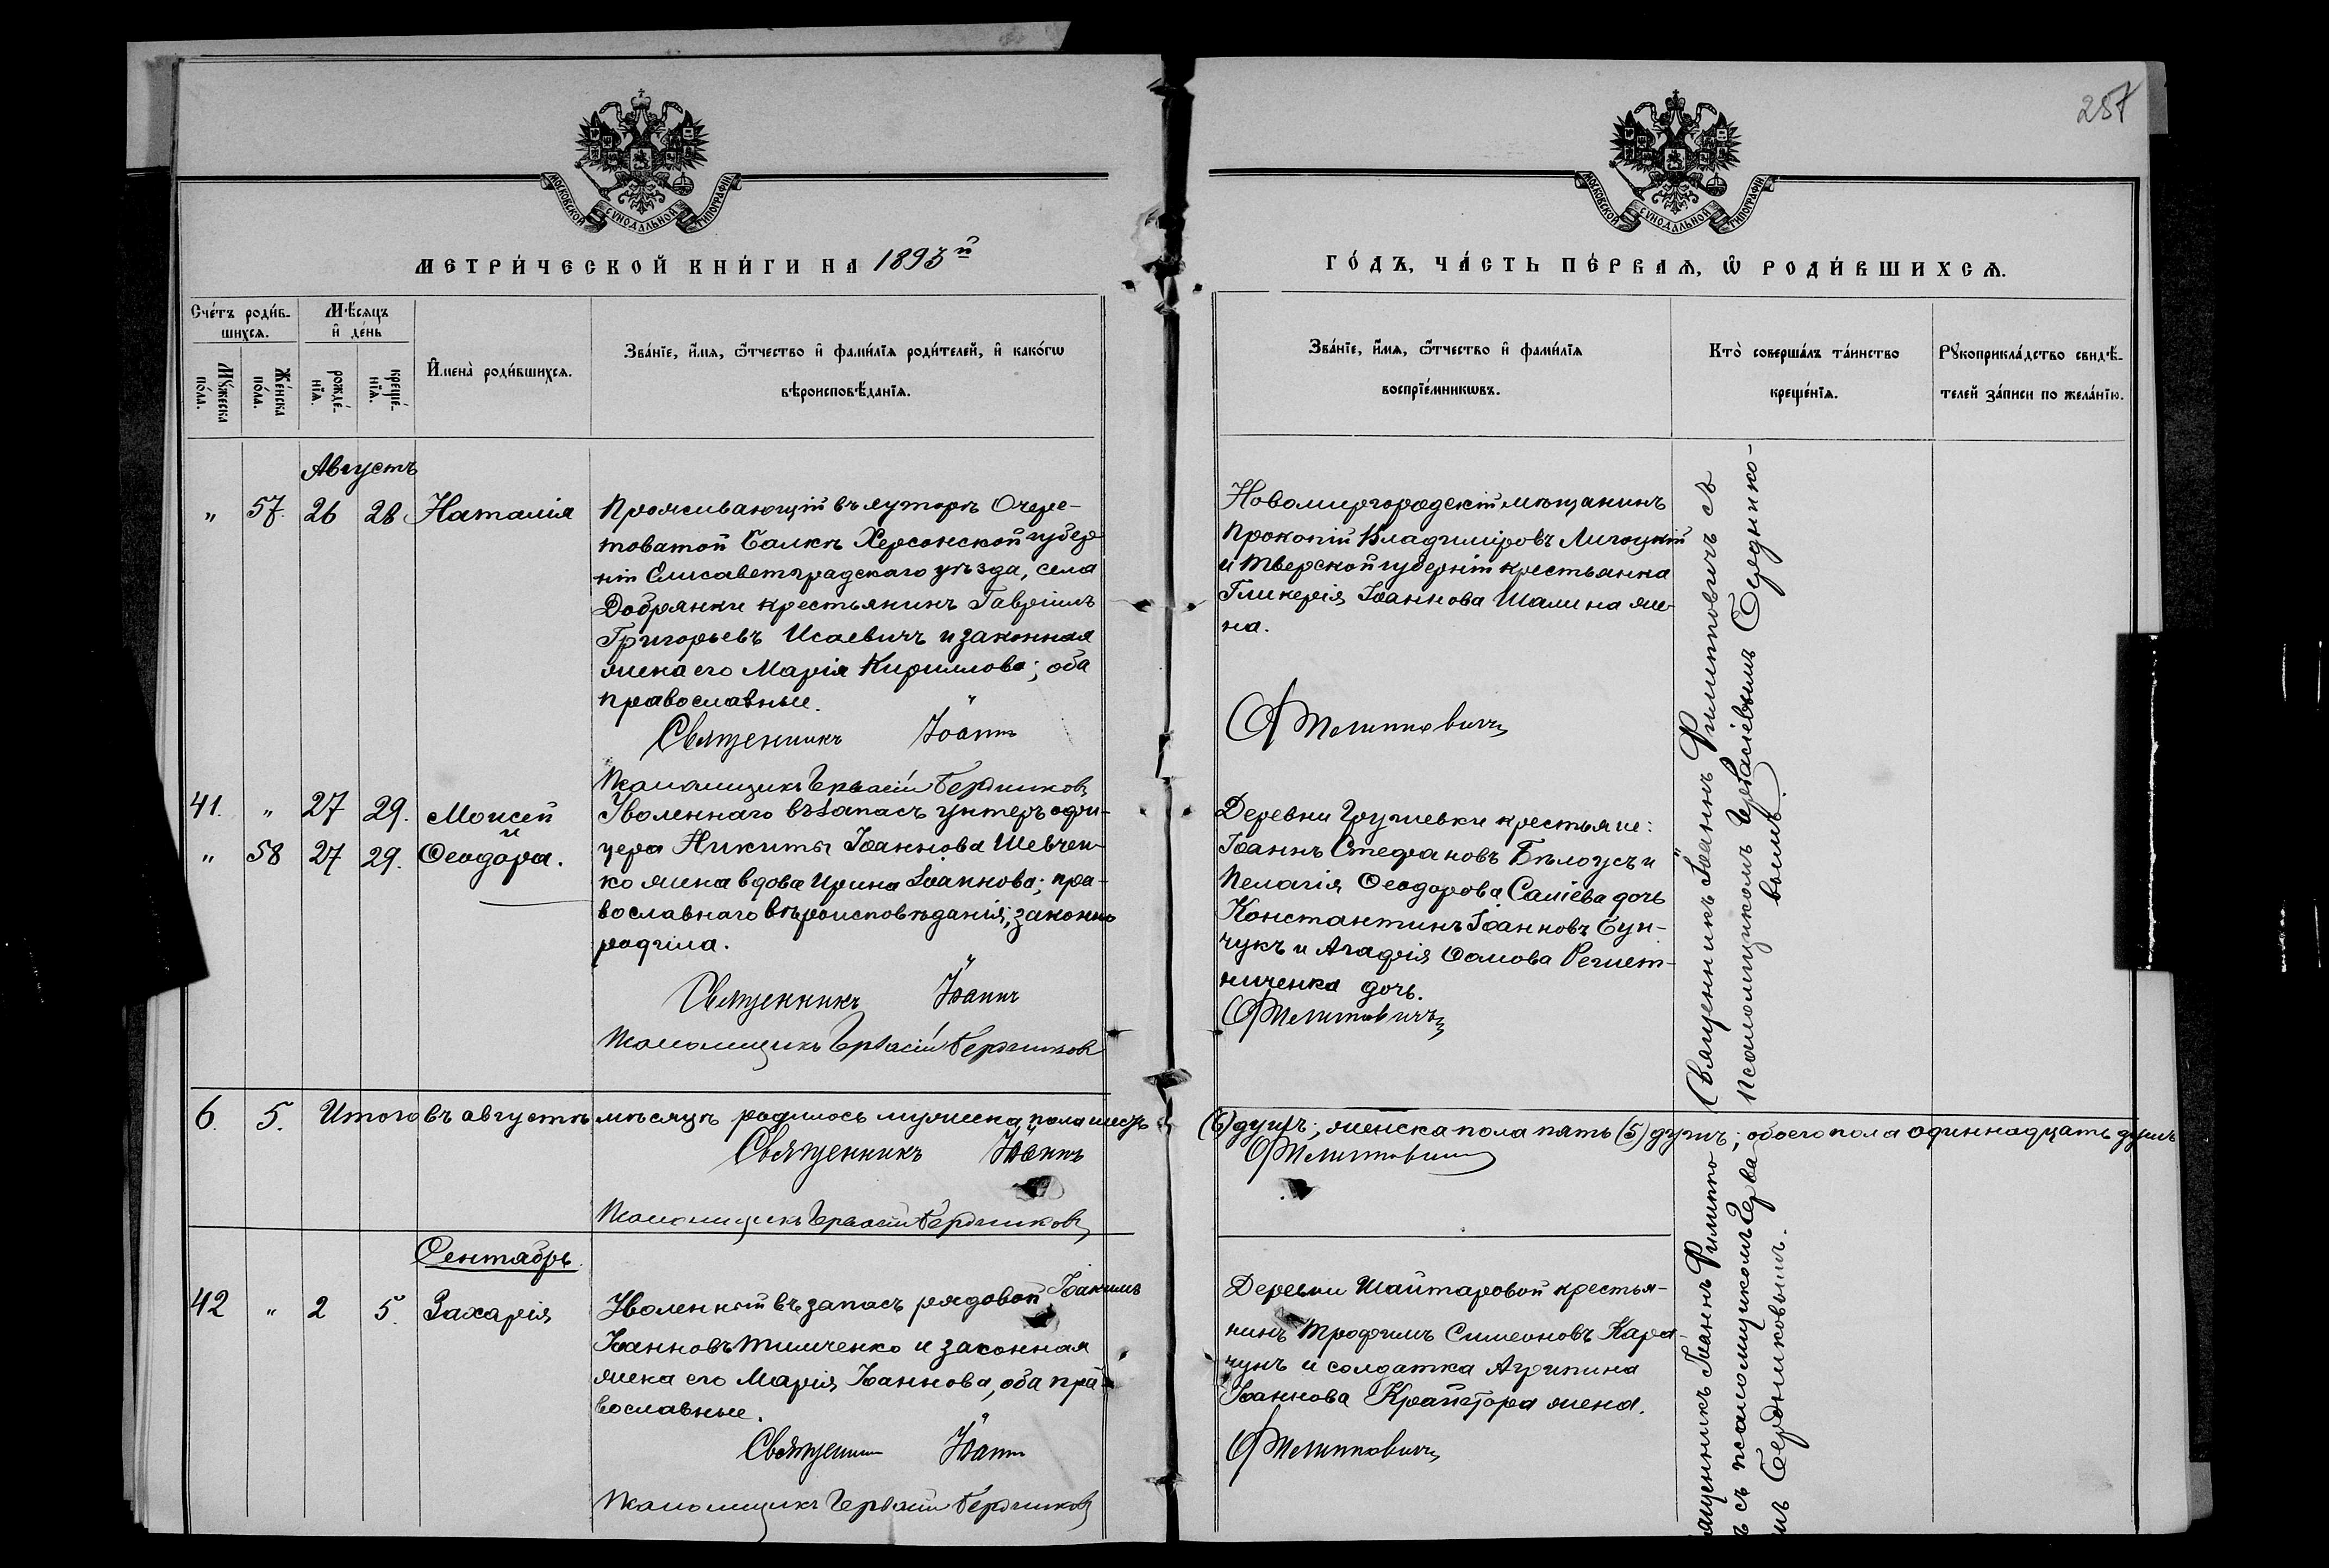 257
МОСКОВСКОЙ СѴНОДАЛЬНОЙ ТИПОГРАФІИ
МОСКОВСКОЙ СѴНОДАЛЬНОЙ ТИПОГРАФІИ
МЕТРИ́ЧЕСКОЙ КНИ́ГИ НА 1893й
ГО́ДЪ, ЧА́СТЬ ПЕ́РВАѦ, Ѽ РОДИ́ВШИХСѦ.
Сче́тъ роди́в-
шихсѧ.
Мꙋ́жеска по́ла.
Же́нска по́ла.
Мѣ́сѧцъ
и҆ де́нь
рожде́-
нїѧ.
креще́-
нїѧ.
И҆мена̀ роди́вшихсѧ.
Зва́нїе, и҆́мѧ, ѻ҆́тчество и҆ фами́лїѧ роди́телей, и҆ како́гѡ
вѣроисповѣ́данїѧ.
Зва́нїе, и҆́мѧ, ѻ҆́тчество и҆ фами́лїѧ
воспрїе́мникѡвъ.
Кто̀ соверша́лъ та́инство
креще́нїѧ.
Рꙋкоприкла́дство свидѣ́-
телей за́писи по жела́нїю.
Августъ
" 57. 26 28 Наталія
Проживающій въ хуторѣ Очере-
товатой Балкѣ Херсонской губер
ніи Елисаветградскаго уѣзда, села
Добрянки крестьянинъ Гавріилъ
Григорьевъ Исаевичъ и законная
жена его Марія Кириллова; оба
православные.
Священникъ Іоаннъ
Псаломщикъ Гервасій Бердниковъ
Новомиргородскій мѣщанинъ
Прокопій Владиміровъ
и Тверской губерніи крестьянка
Гликерія Іоаннова Шалина же-
на.
Филипповичъ
41. " 27 29. Моисей
и
" 58 27 29. Ѳеодора.
Уволеннаго въ запасъ унтеръ офи-
цера Никиты Іоаннова Шевчен-
ко жена вдова Ирина Іоаннова; пра-
вославнаго вѣроисповѣданія; законно
родила.
Священникъ Іоаннъ
Псаломщикъ Гервасій Бердниковъ
Деревни Грушевки крестьяне:
Іоаннъ Стефановъ Бѣлоусъ и
Пелагія Ѳеодорова дочь
Константинъ Іоанновъ Бун-
чукъ и Агафія Ѳомова Решет-
ниченка дочь.
Филипповичъ
Священникъ Іоаннъ Филипповичъ съ
псаломщикомъ Гервасіевымъ Бердника-
вымъ.
6. 5. Итого въ августѣ мѣсяцѣ родилось мужеска пола шесть
(6) душъ; женска пола пять (5) душъ; обоего пола одиннадцать душъ
Священникъ Іоаннъ
Филипповичъ
Псаломщикъ Гервасій Бердниковъ
Сентябрь.
42 " 2 5. Захарія
Уволенный въ запасъ рядовой Іоакимъ
Іоанновъ Тимченко и законная
жена его Марія Іоаннова, оба пра-
вославные.
Священникъ Іоаннъ
Псаломщикъ Гервасій Бердниковъ
Деревни Шайтаровой крестья-
нинъ Трофимъ Симеоновъ Кара-
чунъ и солдатка Агрипина
Іоаннова жена.
Филипповичъ
Священникъ Іоаннъ Филиппо
съ псаломщикомъ Герва
Бердниковымъ.